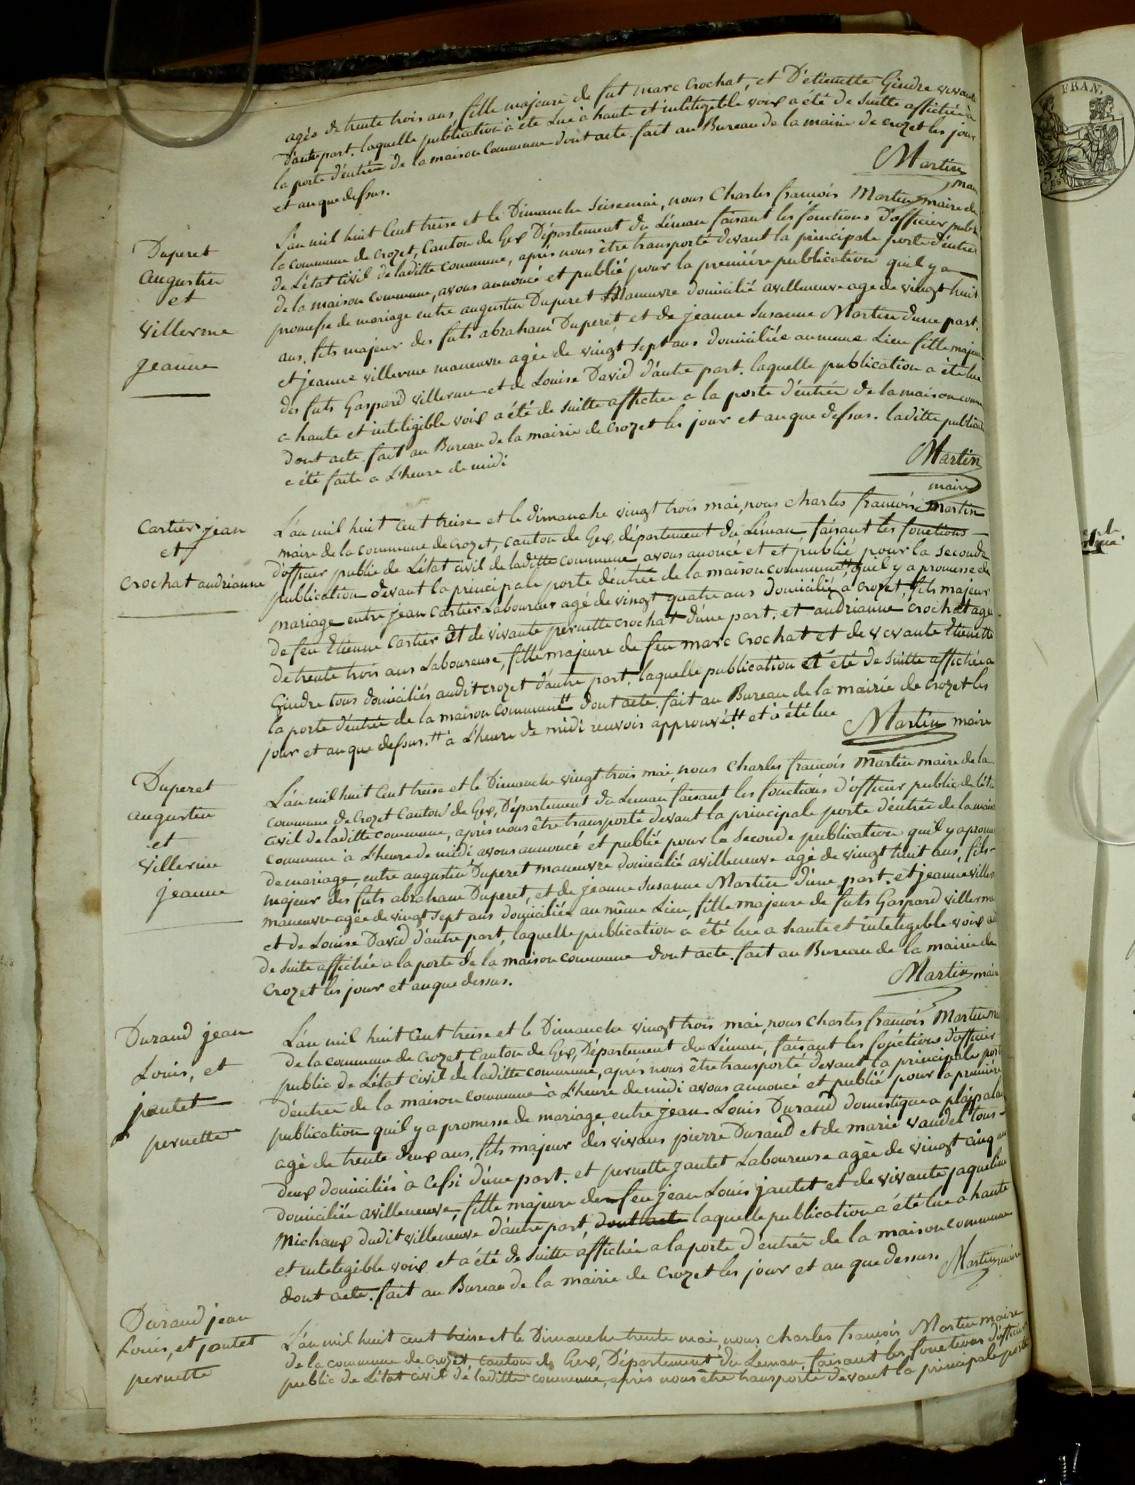 agée de trente trois ans, fille majeure de fut marc Crochat, et D'etiennette Gindre vivante
d'autre part. laquelle publication a été Lue à haute et inteligeble voix a été de Suitte affichée à
la porte d'entrée de la maison Commune dont acte fait au Bureau de la mairie de crozet les jour
et an que dessus.
Martin
maire
Duperet
augustin
et
villerme
jeanne
L'an mil huit Cent treise et le Dimanche Seise mai, nous Charles françois Martin maire de
la commune de Crozet, Canton de Gex Département du Léman faisant les fonctions D'officier public
de L'état Civil de laditte Commune, après nous être transporté devant la principale porte d'entrée
de la maison Commune, avons annoncé et publié pour la première publication quil y a
promesse de mariage entre augustin Duperet Maneuvre domicilié avilleneuve age de vingt huit
ans, fils majeur des futs abraham Duperet, et de jeanne Susanne Martin d'une part.
et jeanne villerme maneuvre agée de vingt Sept ans domiciliée au meme Lieu fille majeure
des futs Gaspard villerme et de Louise David d'autre part. laquelle publication a été lue
a haute et inteligible voix a été de suitte affichee a la porte d'entrée de la maison comm
dont acte fait au Bureau de la mairie de Crozet les jour et an que dessus. laditte publication
a été faite a L'heure de midi
Martin
maire
Cartier jean
et
Crochat audrianne
L'an mil huit Cent treise et le dimanche vingt trois mai, nous Charles françois Martin
maire de la commune de Crozet, canton de Gex, département du Léman faisant les fonctions
d'officier public de L'état civil de laditte commune, avons anoncé et et publié pour la seconde
publication devant la principale porte d'entrée de la maison commune, quil y a promesse de
mariage entre jean Cartier Laboureur agé de vingt quatre ans domicilié a Crozet, fils majeur
de feu Etienne Cartier et de vivante pernette Crochat d'une part. et audrianne Crochat age
de trente trois ans Laboureuse, fille majeure de feu marc Crochat et de vivante Etiennette
Gindre tous domiciliés audit crozet d'autre part. laquelle publication et été de suitte affichée a
la porte d'entrée de la maison commune # dont acte, fait au Bureau de la mairie de Crozet les
jour et an que dessus. # a L'heure de midi renvois approuvé # et a été lue
Martin maire
Duperet
augustin
et
villerme
jeanne
L'an mil huit Cent treise et le Dimanche vingt trois mai, nous Charles françois Martin maire de la
commune de Crozet Canton de Gex, Département du Leman faisant les fonctions d'officier public de L'état
civil de laditte commune, après nous être transporté devant la principale porte d'entrée de la maison
commune a L'heure de midi avons annoncé et publié pour la Seconde publication quil y a promesse
de mariage, entre augustin Duperet maneuvre domicilié avilleneuve agé de vingt huit ans, fils
majeur des futs abraham Duperet, et de jeanne Susanne Martin d'une part. et jeanne villerme
maneuvre agée de vingt Sept ans domiciliée au même Lieu, fille majeure de futs Gaspard villerme
et de Louise David d'autre part, laquelle publication a été lue a haute et inteligible voix a été
de suite affichée a la porte de la maison commune dont acte, fait au Bureau de la mairie de
Crozet les jour et an que dessus.
Martin maire
Durand jean
Louis, et
jautet
pernette
L'an mil huit Cent treise et le Dimanche vingt trois mai, nous Charles françois Martin maire
de la commune de Crozet, Canton de Gex, Département du Léman, faisant les fonctions d'officier
public de L'état civil de laditte commune, après nous être transporté devant la principale porte
d'entrée de la maison commune à L'heure de midi avons annoncé et publié pour la première
publication quil y a promesse de mariage, entre jean Louis Durand domestique
agé de trente deux ans, fils majeur des vivans pierre Durand et de marie vaudel tous
deux domiciliés à Cessi d'une part. et pernette jautet Laboureuse agée de vingt cinq ans
domiciliée avilleneuve, fille majeure de feu jean Louis jautet et de vivante jaqueline
Michaux dudit villeneuve d'autre part, dont acte laquelle publication a été lue a haute
et inteligible voix et a été de suitte affichée a la porte d'entrée de la maison commune
dont acte, fait au Bureau de la mairie de Crozet les jour et an que dessus. Martin maire
Durand jean
Louis, et jautet
pernette
L'an mil huit cent treise et le Dimanche trente mai, nous Charles françois Martin maire
de la commune de Crozet, canton de Gex, Département du Leman, faisant les fonctions d'officier
public de L'état civil de laditte commune, après nous être transporté devant la principale porte
FRAN.